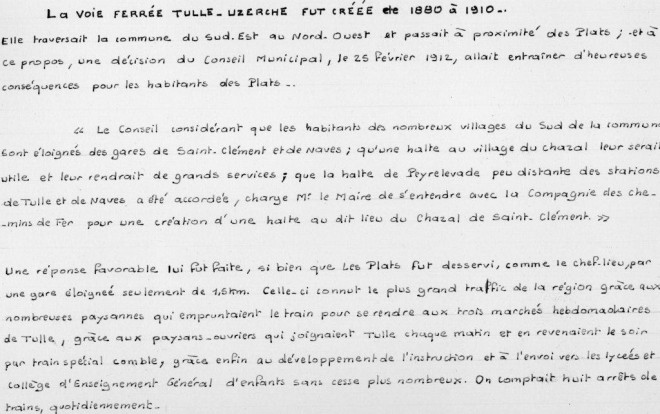 La voie ferrée Tulle-Uzerche fut créée de 1880 à 1910-.
Elle traversait la commune du Sud.Est au Nord-Ouest et passait à proximité des Plats ; et à
ce propos, une décision du Conseil Municipal, le 25 Février 1912, allait entraîner d'heureuses
conséquences pour les habitants des Plats-.
« Le Conseil considérant que les habitants des nombreux villages du Sud de la commune
sont éloignés des gares de Saint-Clément et de Naves ; qu'une halte au village du Chazal leur serait
utile et leur rendrait de grands services ; que la halte de Peyrelevade peu distante des stations
de Tulle et de Naves a été accordée, charge Mr le Maire de s'entendre avec la Compagnie des che-
-mins de Fer pour une création d'une halte au dit lieu du Chazal de Saint-Clément. »
Une réponse favorable lui fut faite, si bien que Les Plats fut desservi, comme le chef-lieu, par
une gare éloignée seulement de 1,5km. Celle-ci connut le plus grand traffic de la région grâce aux
nombreuses paysannes qui empruntaient le train pour se rendre aux trois marchés hebdomadaires
de Tulle, grâce aux paysans-ouvriers qui joignaient Tulle chaque matin et en revenaient le soir
par train spécial comble, grâce enfin au développement de l'instruction et à l'envoi vers les lycées et
collège d'Enseignement Général d'enfants sans cesse plus nombreux. On comptait huit arrêts de
trains, quotidiennement-